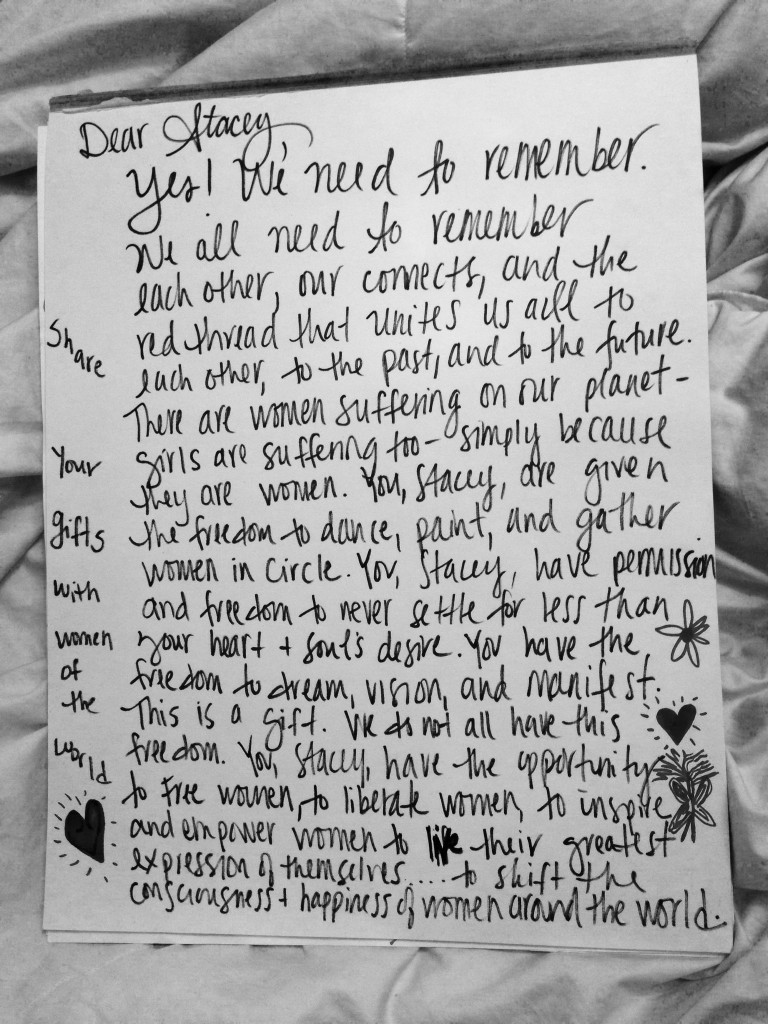 Dear Stacey,
Yes! We need to remember.
We all need to remember
each other, our connects, and the
red thread that unites us all to
each other, to the past, and to the future.
There are women suffering on our planet -
girls are suffering too - simply because
they are women. You, Stacey, are given
the freedom to dance, paint, and gather
women in circle. You, Stacey, have permission
and freedom to never settle for less than
your heart + soul's desire. You have the
freedom to dream, vision, and manifest.
This is a gift. We do not all have this
freedom. You, Stacey, have the opportunity
to free women, to liberate women, to inspire
and empower women to live their greatest
expression of themselves.... to shift the
consciousness + happiness of women around the world.
Share
Your
gifts
with
women
of
the
world